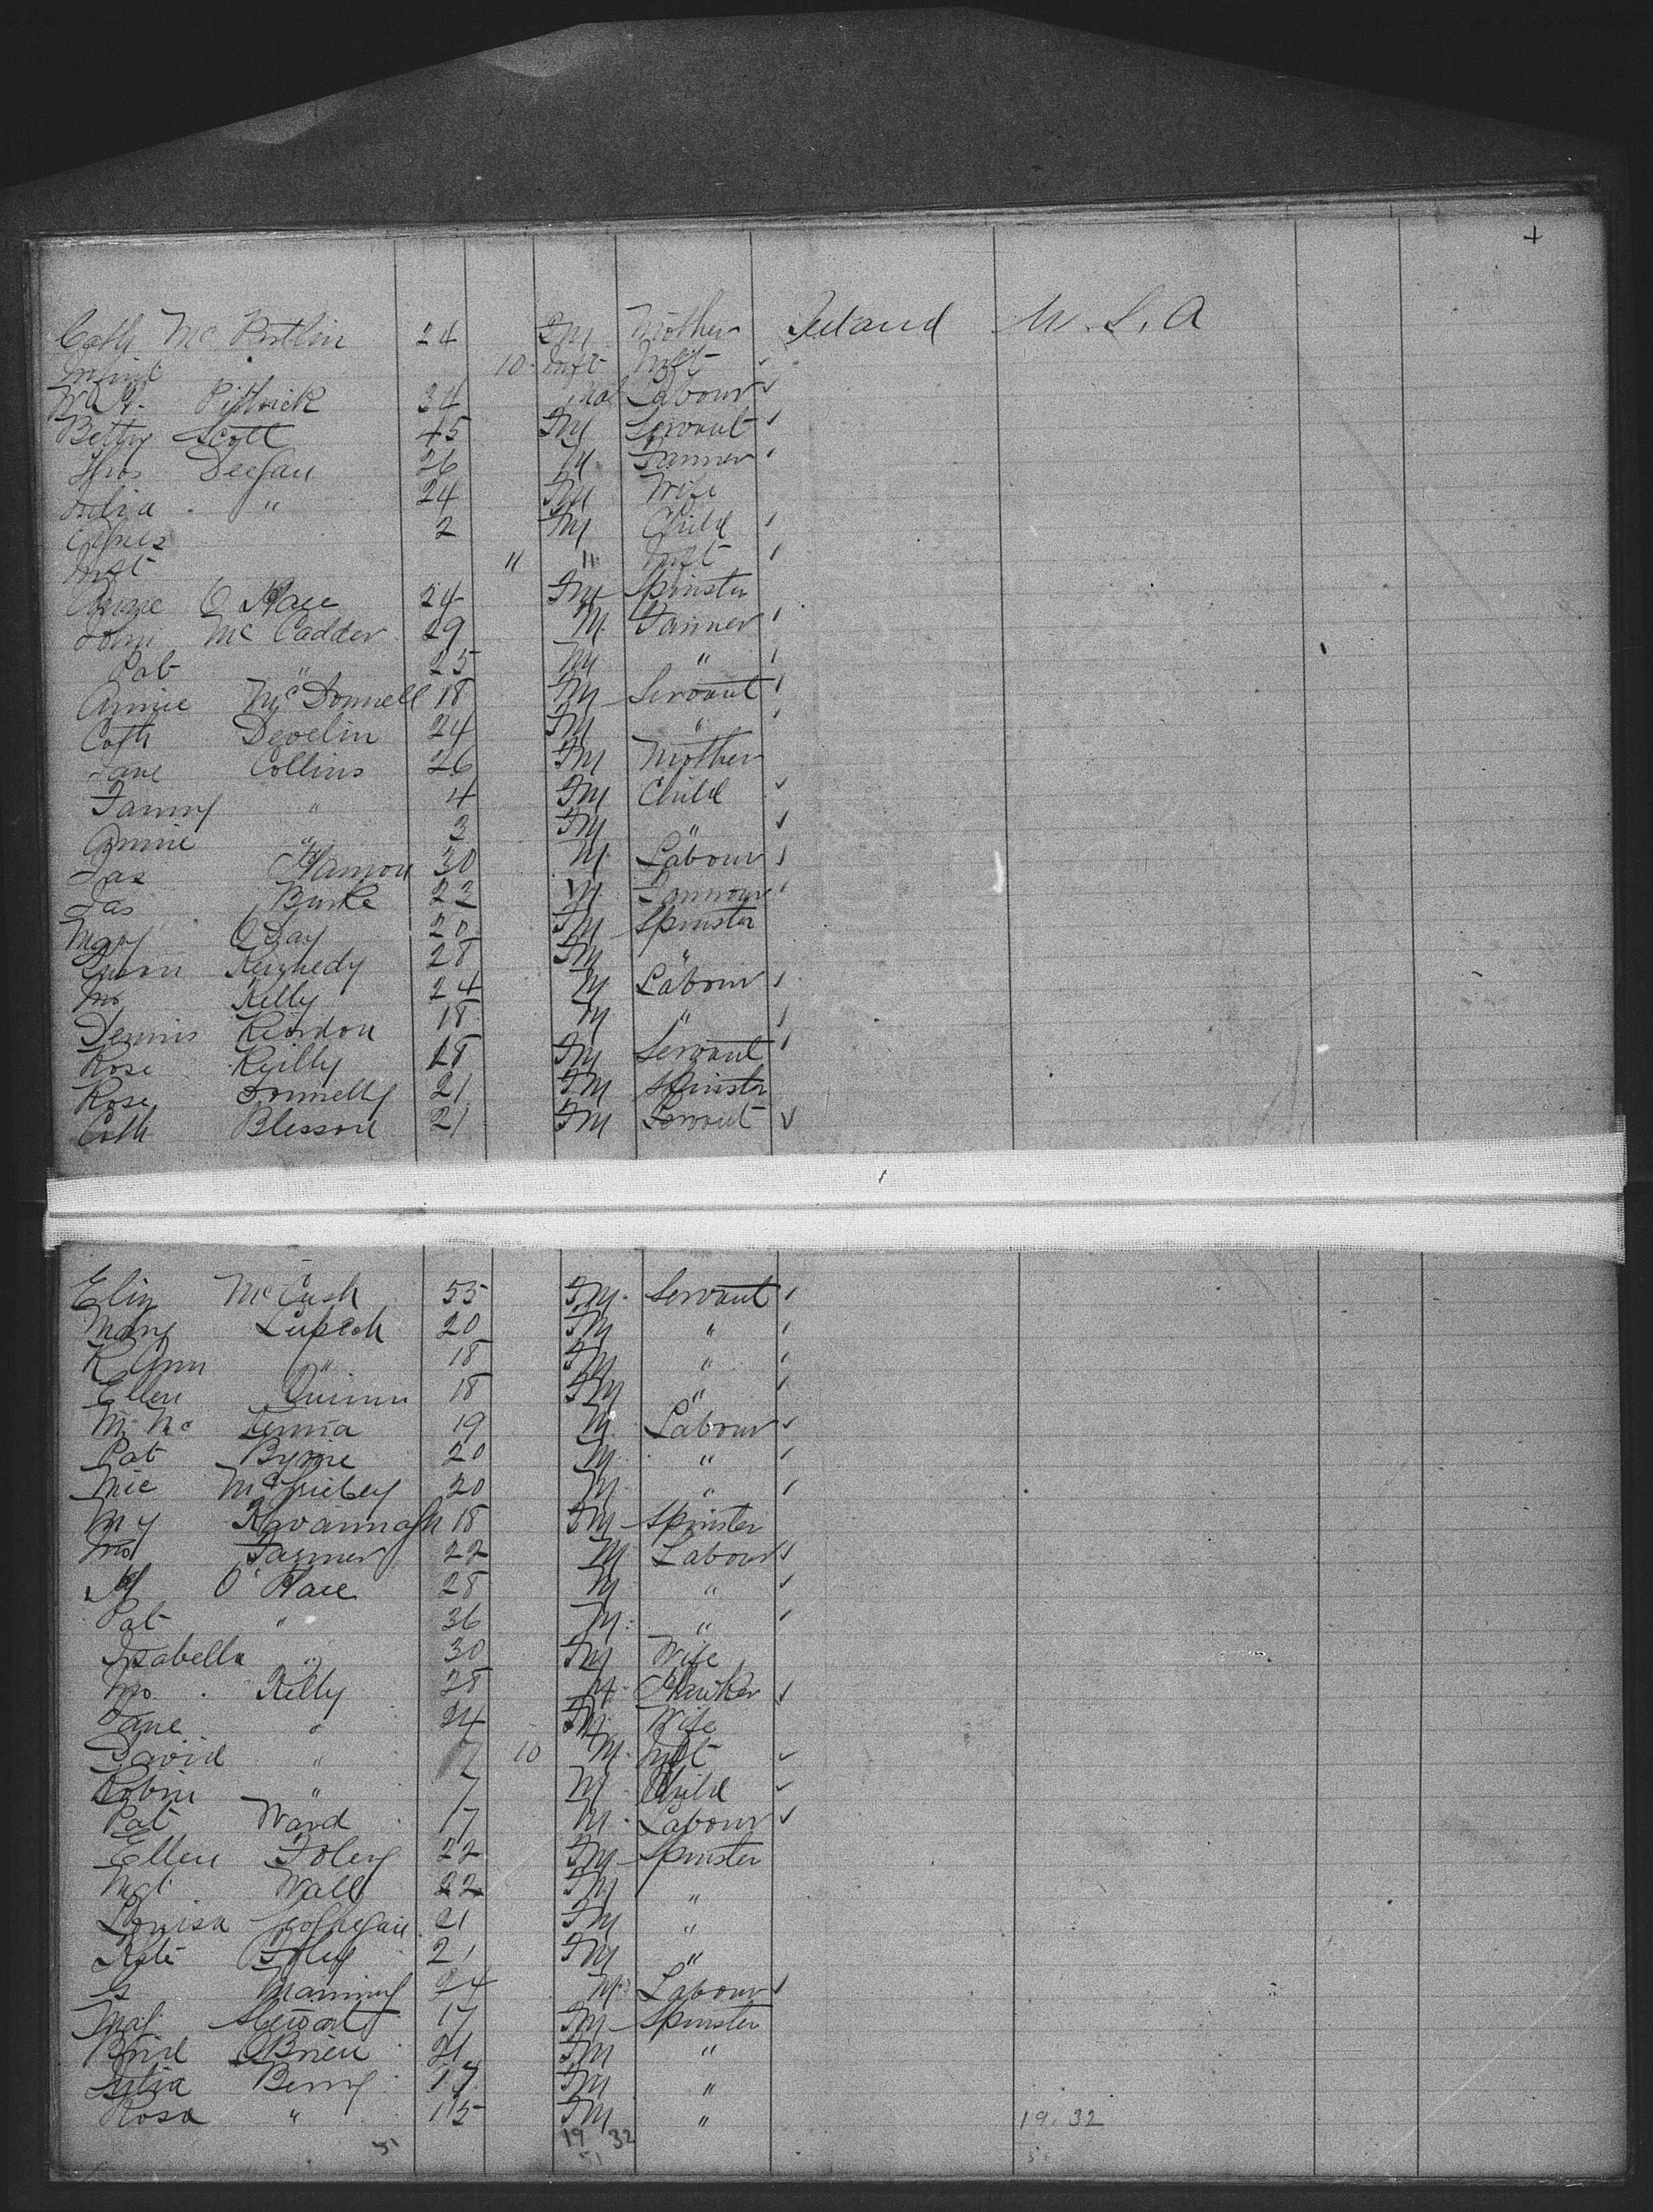 +
Cath Mc Partlin 24 Fm Mother Ireland U.S.A
Infant 10 Inft Inft
34 Mal Labour
Betty Scott 45 Fm Servant
Thos Deegan 26 M Farmer
Julia " 24 Fm Wife
Agnes 2 Fm Child
Inft " " Inft
Annie O Hare 24 Fm Spinster
John Mc Cadder 29 M. Farmer
Pat " 25 M "
Annie McDonnell 18 Fm Servant
Cath Develin 24 Fm "
Jane Collins 26 Fm Mother
Fanny " 4 Fm Child
Annie " 3 Fm "
Jas Hanson 30 M. Labour
Jas Burke 22 M
Mary O Day 20 Fm Spinster
Susan Kennedy 28 Fm "
Jno Kelly 24 M Labour
Dennis Riordon 18 M "
Rose Reilly 18 Fm Servant
Rose Donnelly 21 Fm Spinster
Cath Blesson 21 Fm Servant
Eliz McCush 55 Fm. Servant
Mary 20 Fm "
K Ann " 18 Fm "
Ellen Quinn 18 Fm "
M. Mc Kenna 19 M. Labour
Pat Byrne 20 M. "
Mic 20 M. "
My Kavannagh 18 Fm Spinster
Jno Farmer 22 M Labour
M O'Hare 28 M "
Pat " 36 M. "
Isabella " 30 Fm Wife
Jno. Kelly 28 M. Hawker
Jane " 24 Fm. Wife
David " 10 M. Inft
Robin " 7 M Child
Pat Ward 17 M. Labour
Ellen Foley 22 Fm Spinster
Mgt Wall 22 Fm "
Louisa Geoghegan 21 Fm "
Kate Foley 21 Fm "
Manning 24 M. Labour
Mag Stewart 17 Fm Spinster
Brid O'Brien 21 Fm "
Julia Berry 17 Fm "
Rosa " 15 Fm "
19.32
51
19 32
51
51